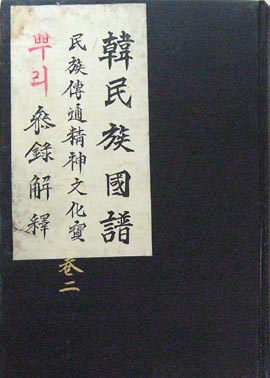 韓民族國譜
民族傳通精神文化寶
뿌리 叅錄解釋
卷二